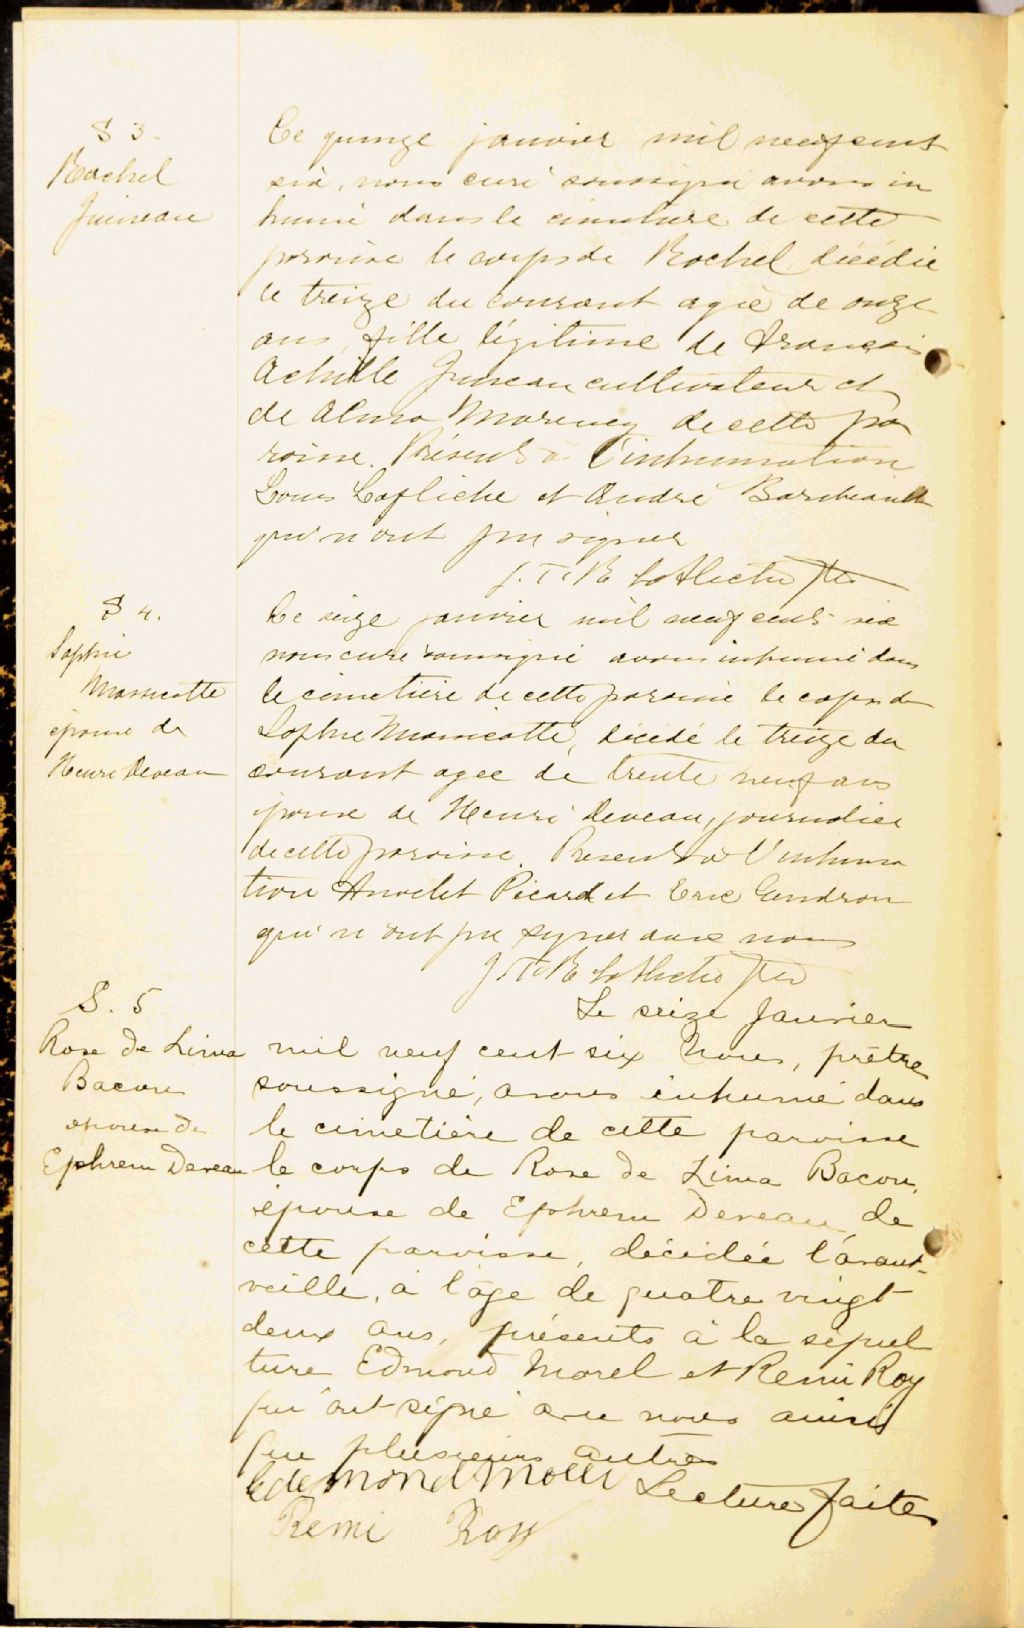 S 3.
Rachel
Juineau
Ce quinze janvier mil neuf cent
six, nous curé soussigné avons in
humé dans le cimetière de cette
paroisse le corps de Rachel, décédée
le treize du courant agée de onze
ans, fille légitime de François
Achille Juneau cultivateur et
de Alma Marency de cette pa
roisse. Présents à l'inhumation
Louis Laflèche et André Barbeault
qui n'ont pu signer
S 4.
Sophie
Massicotte
épouse de
Henri Deveau
Le seize janvier mil neuf cent six
nous curé soussigné avons inhumé dans
le cimetière de cette paroisse le corps de
Sophie Massicotte, décédé le treize du
courant agée de trente neuf ans
épouse de Henri Deveau, journalier
de cette paroisse. Présents à l'inhuma
tion Picard et Eric Gendron
qui n'ont pu signer avec nous
S. 5
Rose de Lima
Bacon
épouse de
Ephrem Deveau
Le seize Janvier
mil neuf cent six Nous, prêtre
soussigné, avons inhumé dans
le cimetière de cette paroisse
le corps de Rose de Lima Bacon,
épouse de Ephrem Deveau de
cette paroisse, décédée l'avant-
veille, à l'âge de quatre vingt
deux ans, présents à la sépul
ture Edmond Morel et Remi Roy
qui ont signé avec nous ainsi
que plusieurs autres
Edemond Morel Lecture faite
Remi Roy